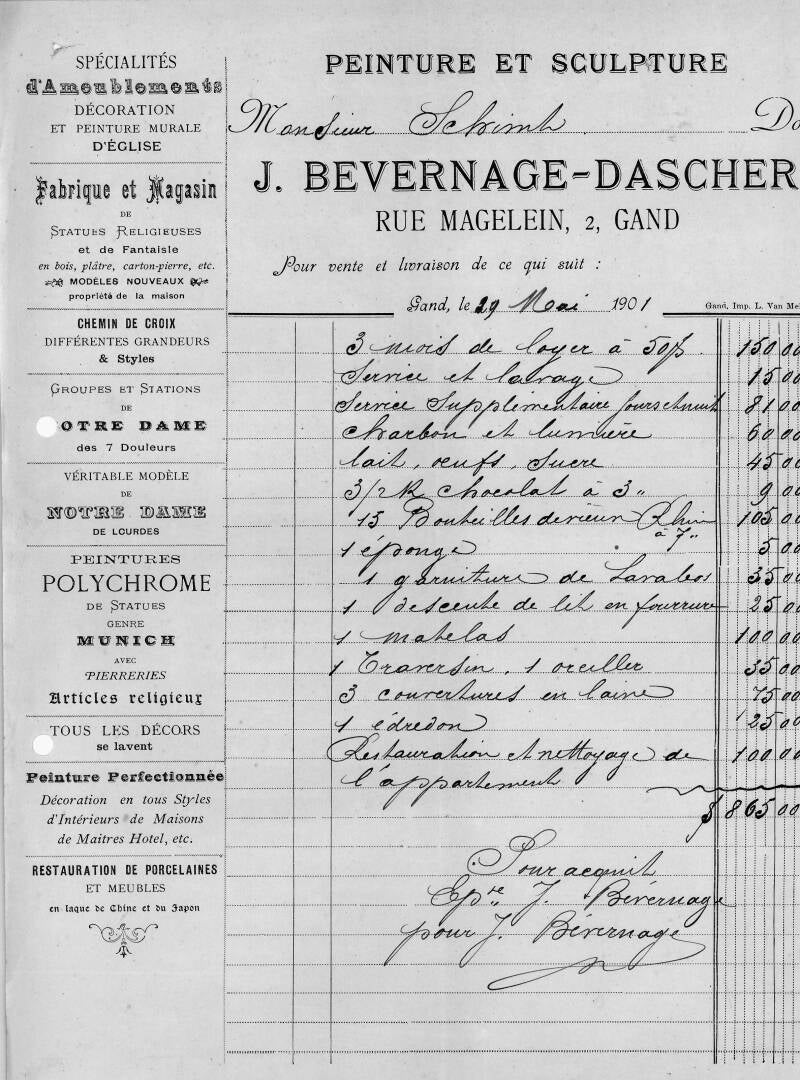 SPÉCIALITÉS
d'Ameublements
DÉCORATION
ET PEINTURE MURALE
D'ÉGLISE
Fabrique et Magasin
DE
STATUES RELIGIEUSES
et de Fantaisie
en bois, plâtre, carton-pierre, etc.
MODÈLES NOUVEAUX
propriété de la maison
CHEMIN DE CROIX
DIFFÉRENTES GRANDEURS
& Styles
GROUPES ET STATIONS
DE
OTRE DAME
des 7 Douleurs
VÉRITABLE MODÈLE
DE
NOTRE DAME
DE LOURDES
PEINTURES
POLYCHROME
DE STATUES
GENRE
MUNICH
AVEC
PIERRERIES
Articles religieux
TOUS LES DÉCORS
se lavent
Peinture Perfectionnée
Décoration en tous Styles
d'Intérieurs de Maisons
de Maitres Hotel, etc.
RESTAURATION DE PORCELAINES
ET MEUBLES
en laque de Chine et du Japon
PEINTURE ET SCULPTURE
Monsieur
J. BEVERNAGE-DASCHER
RUE MAGELEIN, 2, GAND
Pour vente et livraison de ce qui suit :
Gand, le 29 Mai 1901
Gand, Imp. L. Van Me
3 mois de loyer à 50 150 00
Service et lavage 15 00
Service Supplémentaire jours et nuit 81 00
Charbon et lumière 60 00
lait, œufs, sucre 45 00
3/2 K chocolat à 3" 9 00
15 Bouteilles de vieux Rhin à 7" 105 00
1 éponge 5 00
1 garniture de Lavabos 35 00
1 descente de lit en fourrure 25 00
1 matelas 100 00
1 Traversin, 1 oreiller 35 00
3 couvertures en laine 75 00
1 édredon 25 00
Restauration et nettoyage de 100 00
l'appartement
865 00
Pour acquit
Epse J. Bévernage
pour J. Bévernage